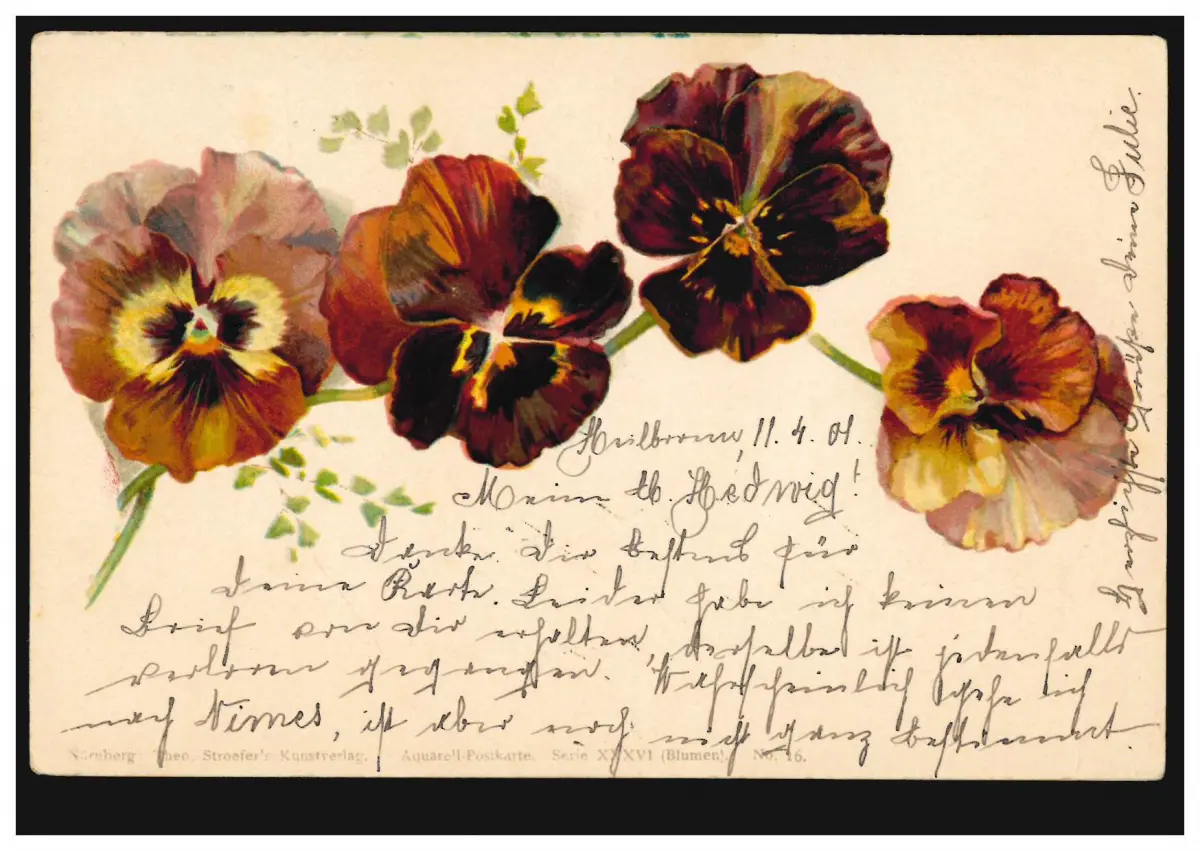 Heilbronn, 11. 4. 01.
Meine lb. Hedwig!
Danke Dir bestens für
deine Karte. Leider habe ich keinen
Brief von Dir erhalten, derselbe ist jedenfalls
verloren gegangen. Wahrscheinlich gehe ich
nach Nimes, ist aber noch nicht ganz bestimmt.
Herzlichst grüßt deine Julie.
Nürnberg Theo. Stroefer's Kunstverlag. Aquarell-Postkarte. Serie XXXVI (Blumen). No. 16.